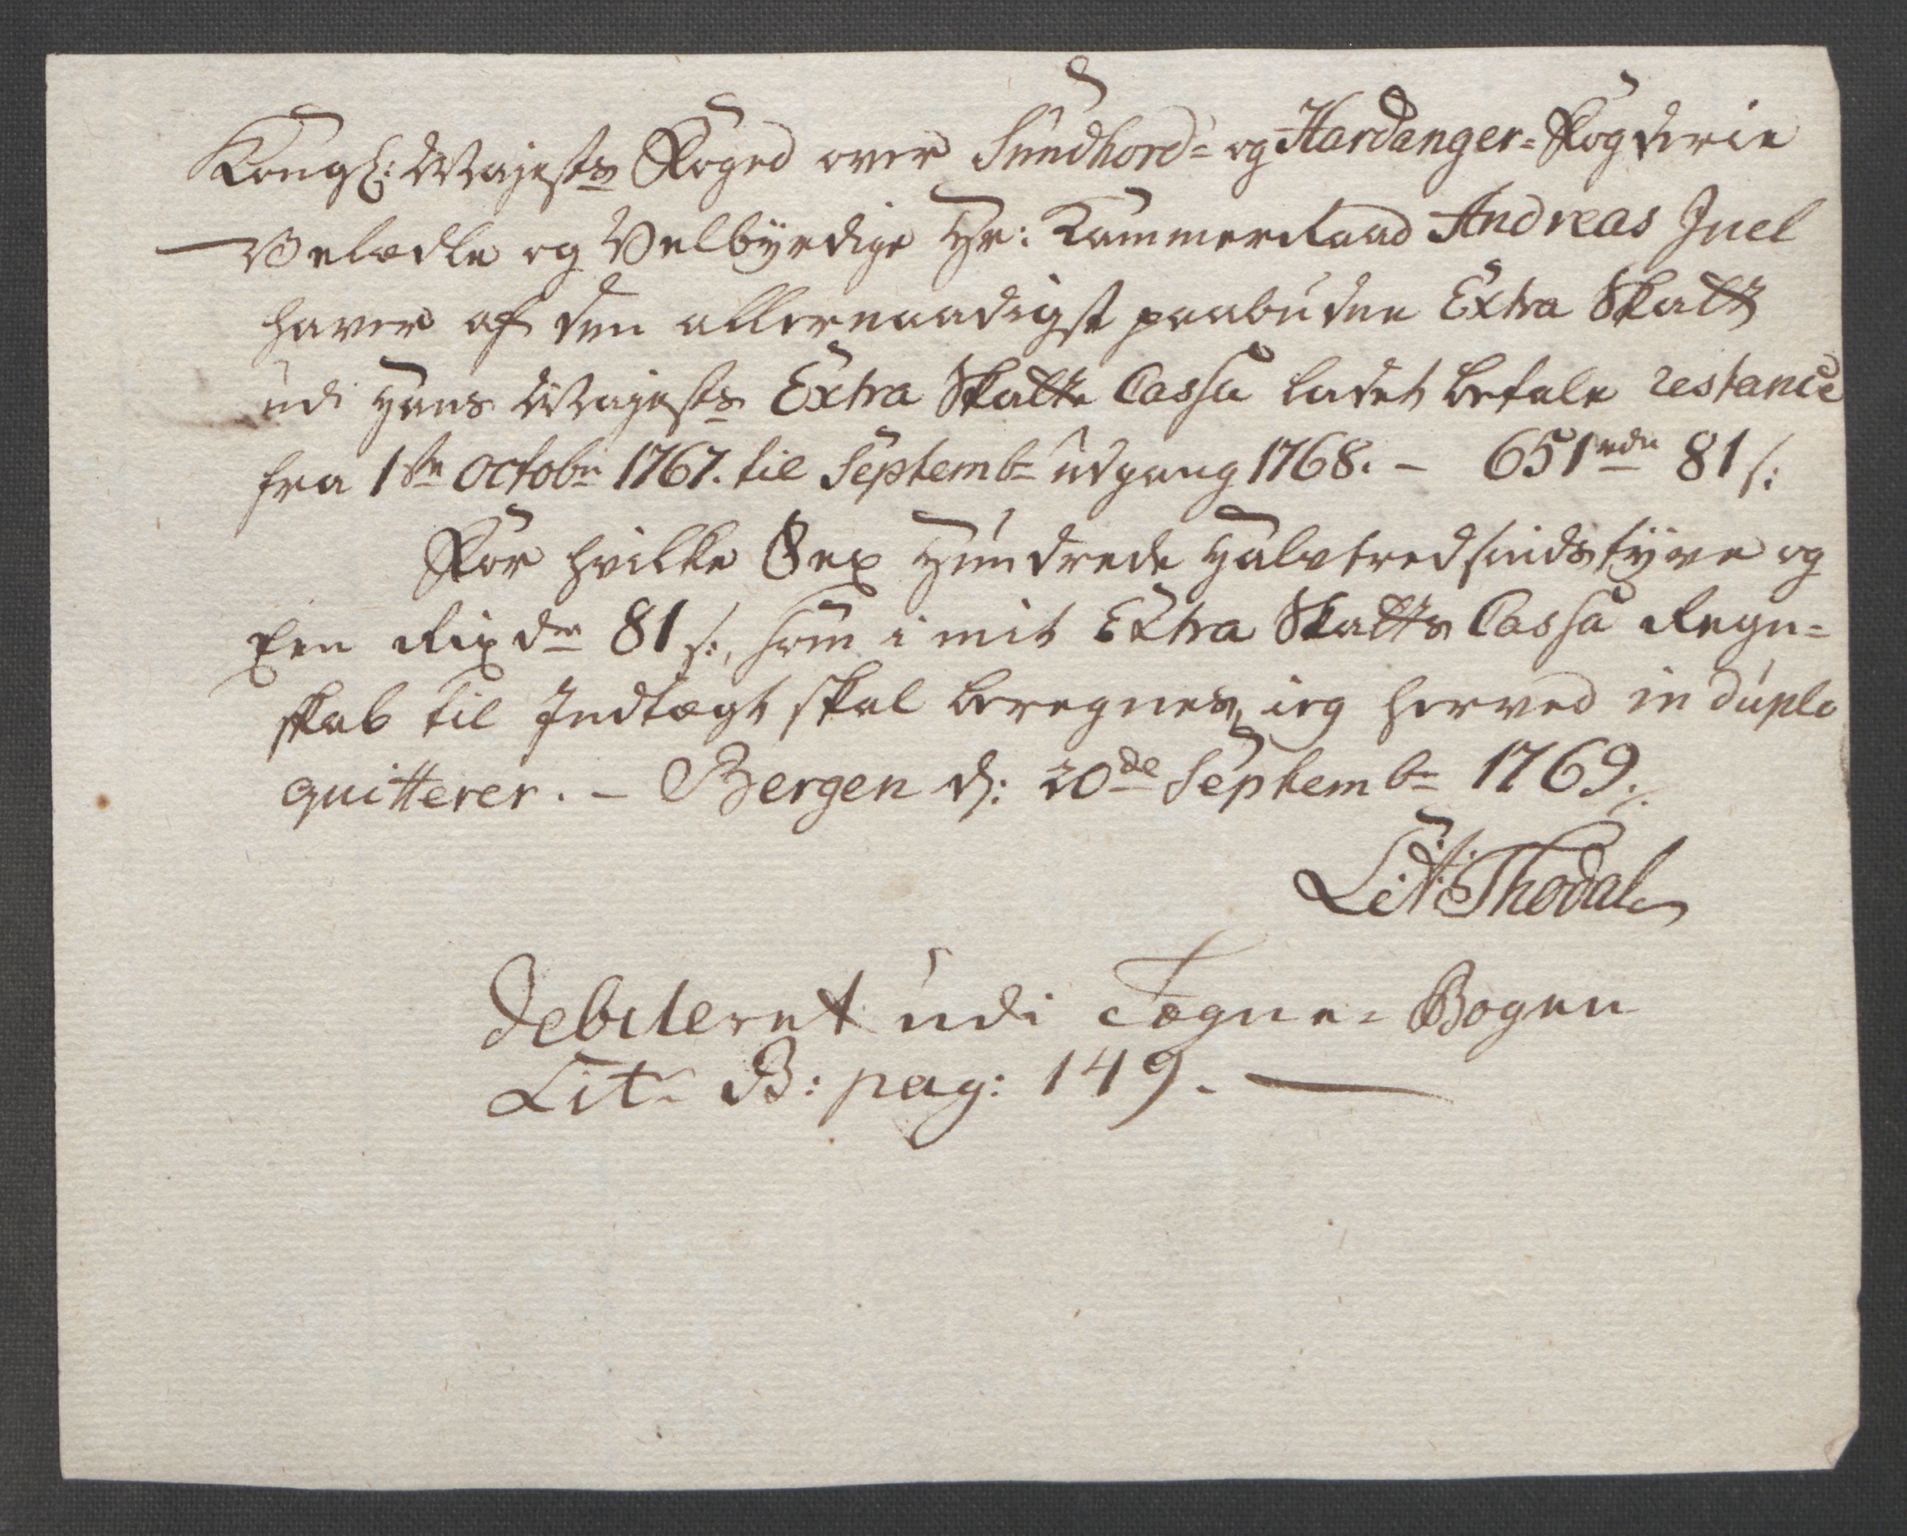 Kongl: Majests Foged over Sundhord- og Hardanger-Fogderie
Velædle og Velbyrdige Hr: Kammerraad Andreas Juel
haver af den allernaadigst paabudne Extra Skatt
udi Hans Majests Extra Skatte Cassa ladet betale restance
fra 1ste Octobr 1767. til Septembr udgang 1768. - 651 rdr 81 s:
For hvilke Sex Hundrede Halvtredsindstyve og
Een Rixdr 81 s:, som i mit Extra Skatts Cassa Regn=
skab til Indtægt skal beregnes, ieg herved in duplo
quitterer. - Bergen d: 20de Septembr 1769.
L: A: Thodal
Debiteret udi Tegne-Bogen
Litr B: pag: 149.